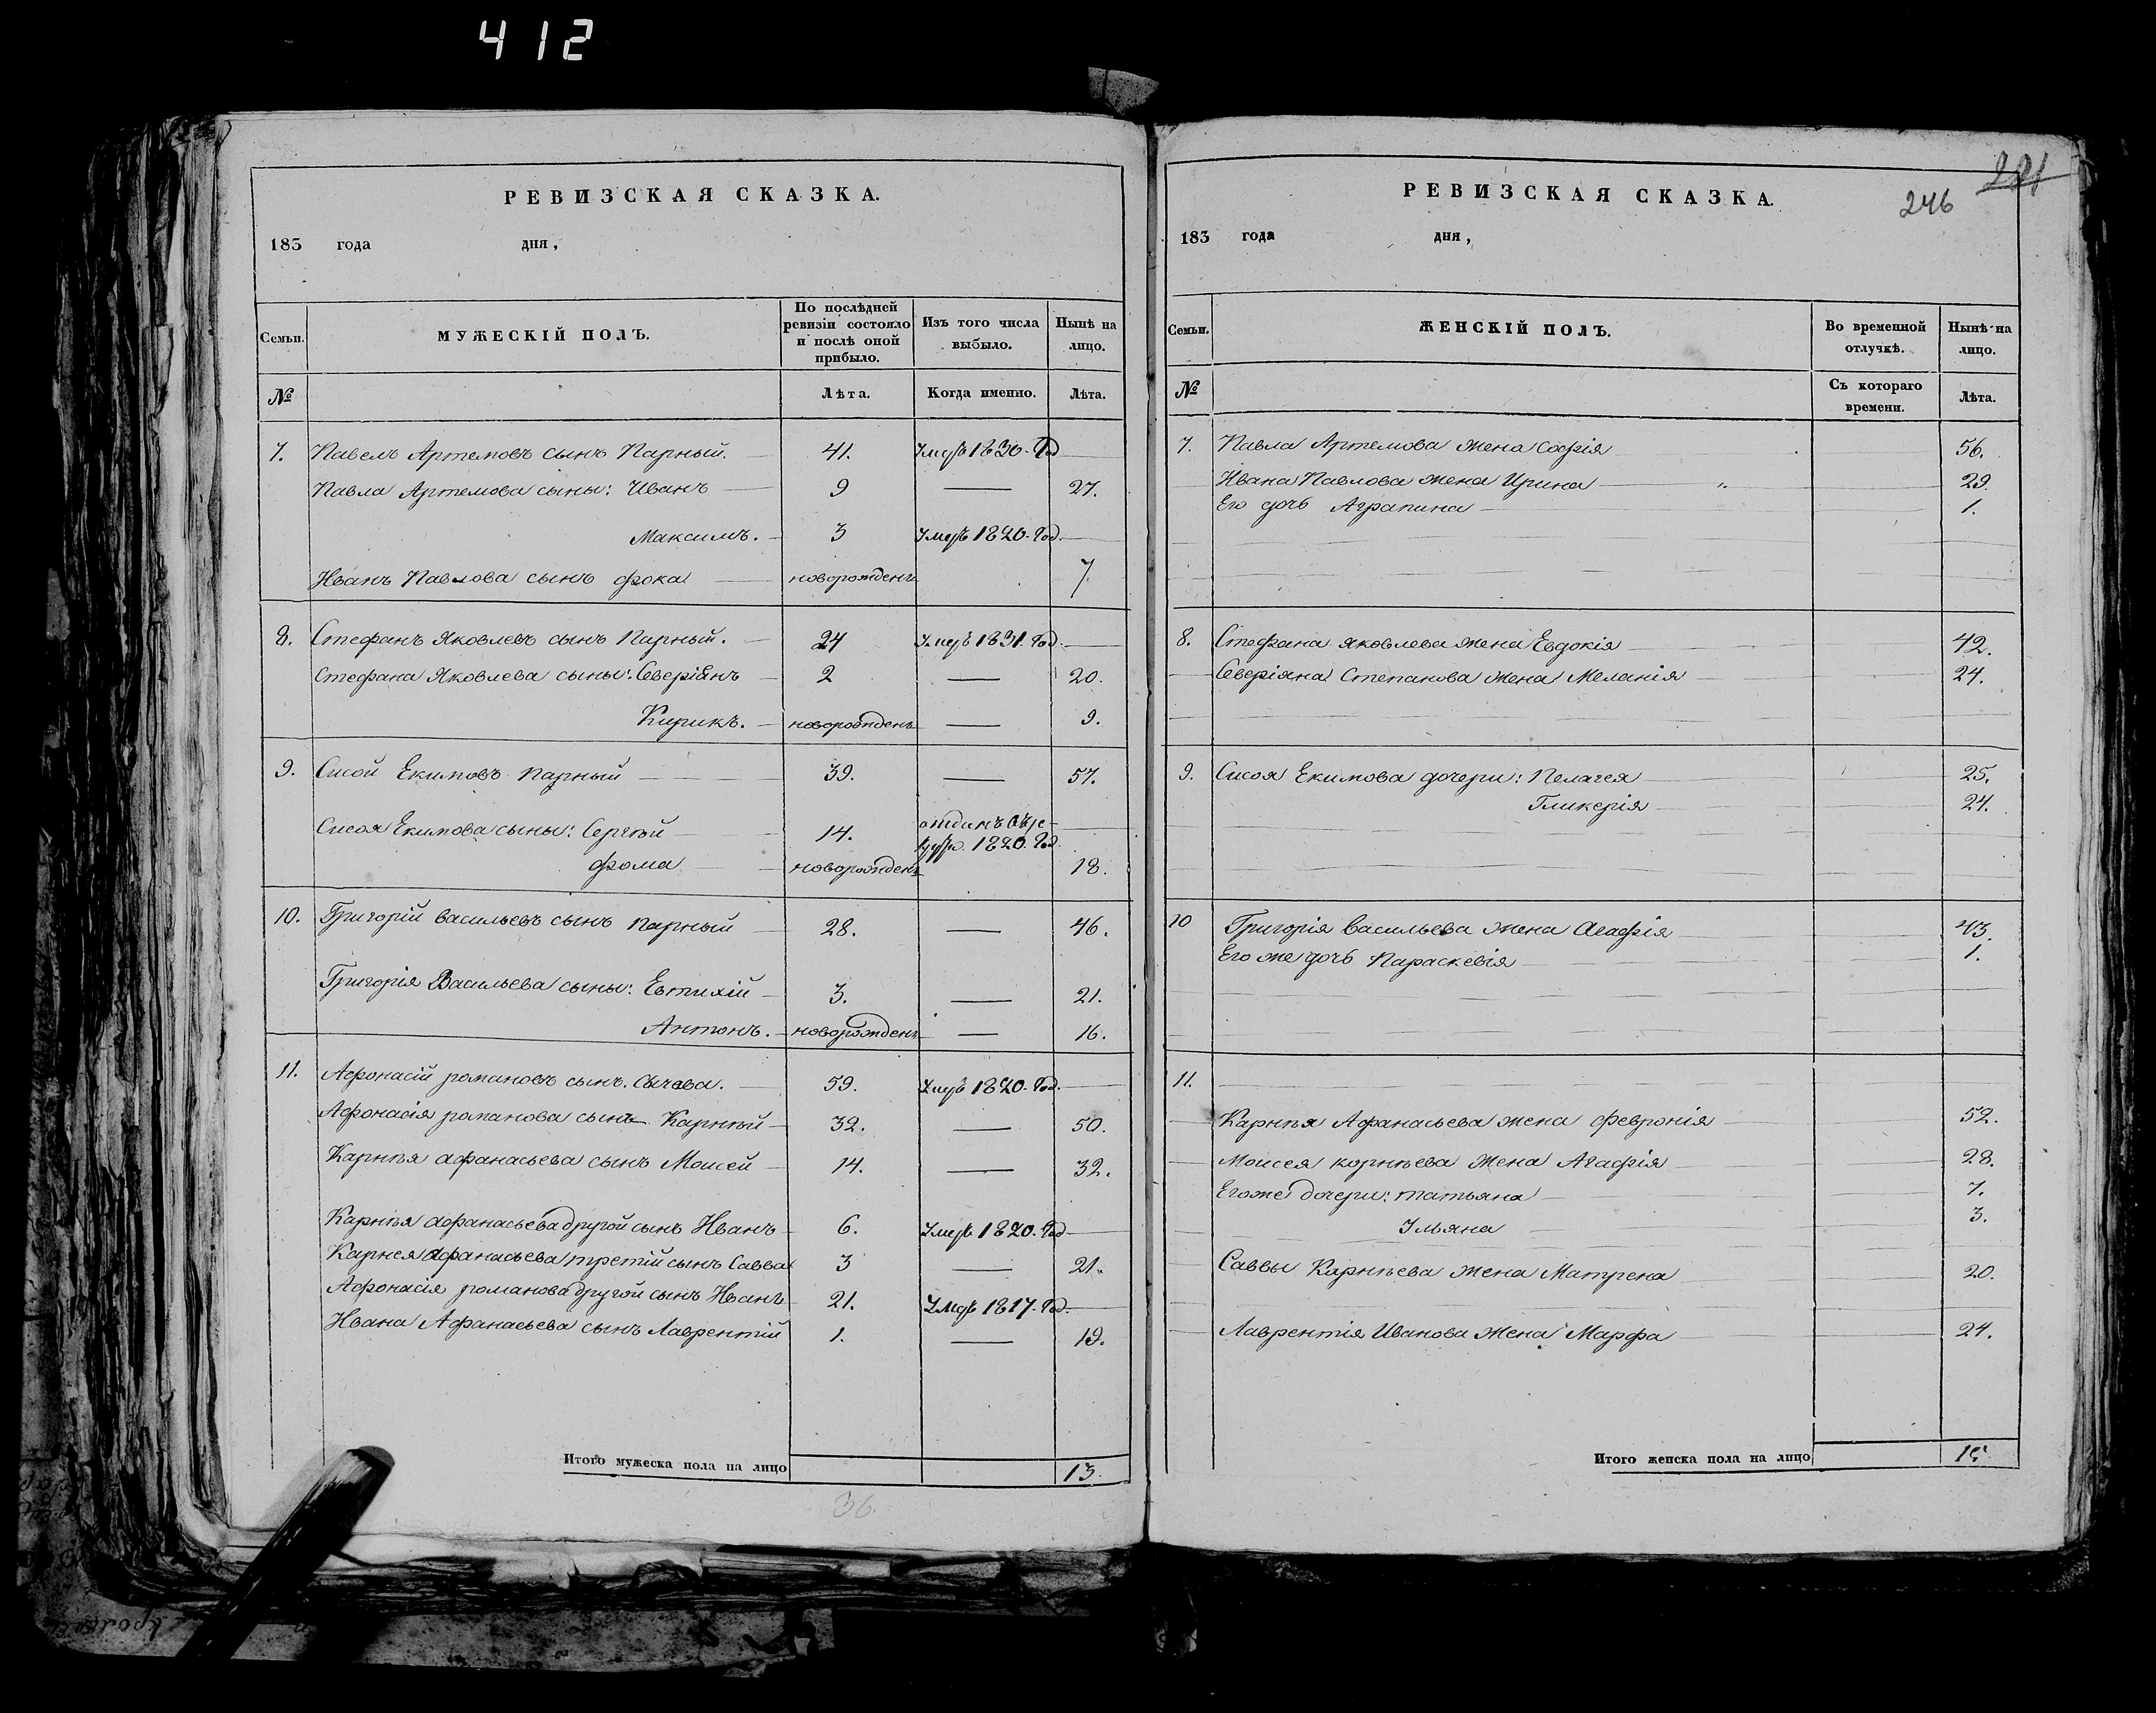 412
РЕВИЗСКАЯ СКАЗКА.
183 года дня,
Семьи. МУЖЕСКІЙ ПОЛЪ. По послѣдней ревизіи состояло и послѣ оной прибыло. Изъ того числа выбыло. Нынѣ на лицо.
№ Лѣта. Когда именно. Лѣта.
7. Павелъ Артемовъ сынъ Парный. 41. Умеръ 1830. Год
Павла Артемова сыны: Иванъ 9 27.
Максимъ. 3 Умеръ 1820. Год.
Иванъ Павлова сынъ фока новорожденъ 7
8. Стефанъ Яковлевъ сынъ Парный. 24 Умеръ 1831. Год.
Стефана Яковлева сыны: Северіянъ 2 20.
Кирикъ. новорожденъ 9.
9. Сисой Екимовъ Парный 39. 57.
Сисоя Екимова сыны: Сергѣй 14. отданъ 1820. Год.
фома новорожденъ 18.
10. Григорій васильевъ сынъ парный 28. 46.
Григорія Васильева сыны: Евтихій 3. 21.
Антонъ. новорожденъ 16.
11. Афонасій романовъ сынъ. Сычева. 59. Умеръ 1820. Год.
Афонасія романова сынъ Карнѣй 32. 50.
Карнѣя афанасьева сынъ Моисей 14. 32.
Карнѣя афанасьева другой сынъ Иванъ 6. Умеръ 1820. Год
Карнея афанасьева третій сынъ Савва 3 21.
Афонасія романова другой сынъ Иванъ 21. Умеръ 1817. Год.
Ивана Афанасьева сынъ Лаврентій 1. 19.
Итого мужеска пола на лицо 13.
36.
РЕВИЗСКАЯ СКАЗКА.
246
183 года дня,
Семьи. ЖЕНСКІЙ ПОЛЪ. Во временной отлучкѣ. Нынѣ на лицо.
№ Съ котораго времени. Лѣта.
7. Павла Артемова жена Софія 56.
Ивана Павлова жена Ирина 29.
Его дочь Аграпина 1.
8. Стефана яковлева жена Евдокія 42.
Северіяна Степанова жена Меланія 24.
9. Сисоя Екимова дочери: Пелагея 25.
Гликерія 24.
10 Григорія васильева жена Агафія 43.
Его же дочь Параскевія 1.
11.
Карнѣя Афанасьева жена февронія 52.
Моисея корнѣева жена Агафія 28.
Егоже дочери: татьяна 7.
Ульяна 3.
Саввы Карнѣева жена Матрена 20.
Лаврентія Иванова жена Марфа 24.
Итого женска пола на лицо 15.